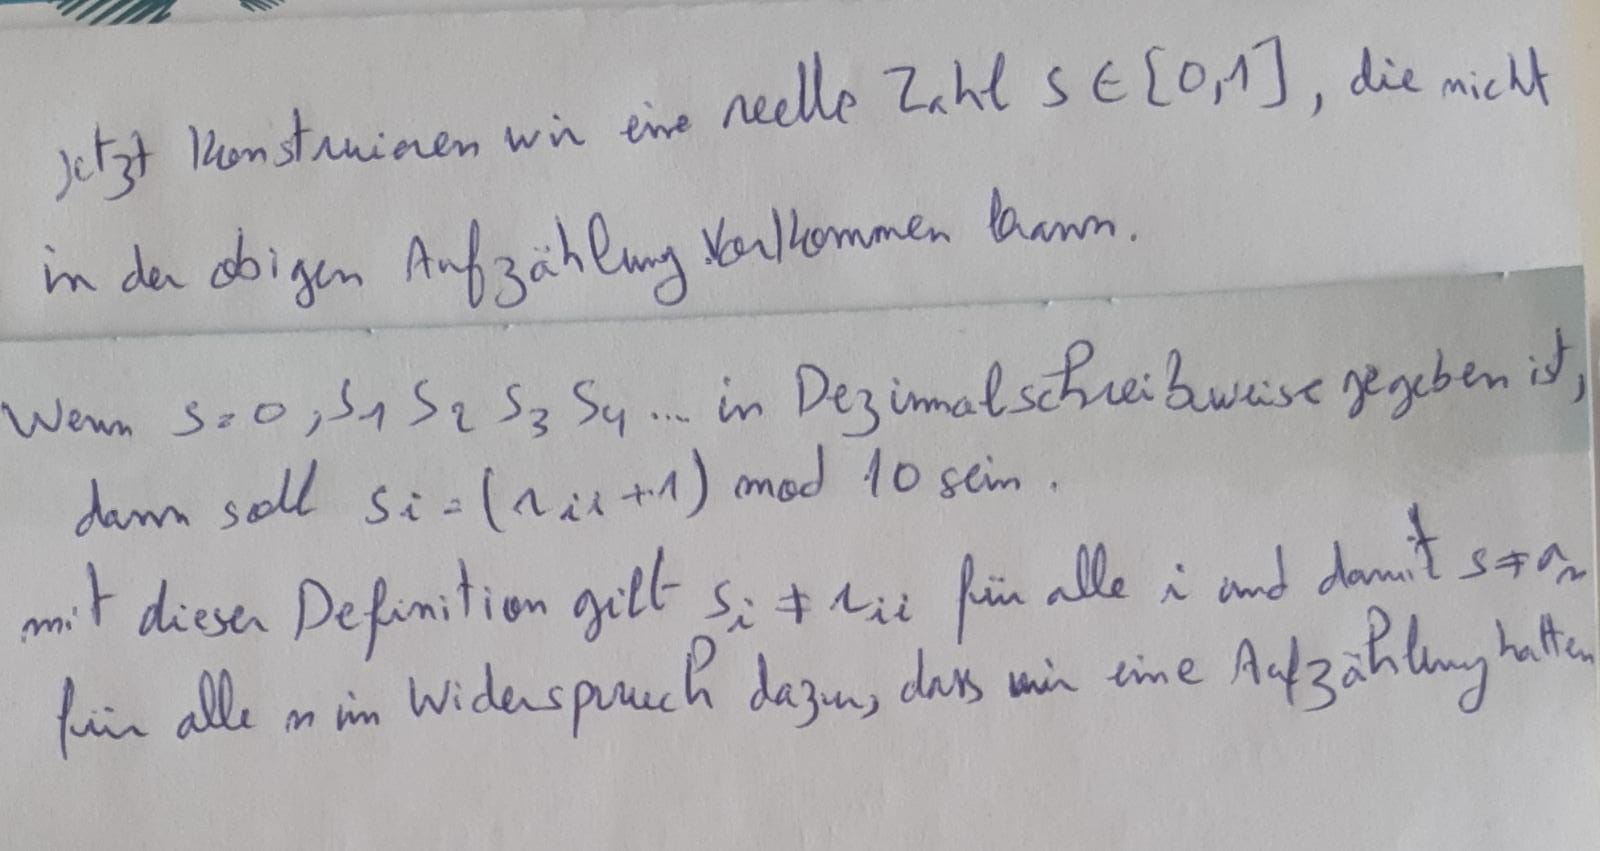 Jetzt konstruieren wir eine reelle Zahl s ∈ [0,1], die nicht
in der obigen Aufzählung vorkommen kann.
Wenn s=0,s₁ s₂ s₃ s₄ ... in Dezimalschreibweise gegeben ist,
dann soll sᵢ = (rᵢᵢ +1) mod 10 sein.
mit dieser Definition gilt sᵢ ≠ rᵢᵢ für alle i und damit s ≠ rₙ
für alle n im Widerspruch dazu, dass wir eine Aufzählung hatten